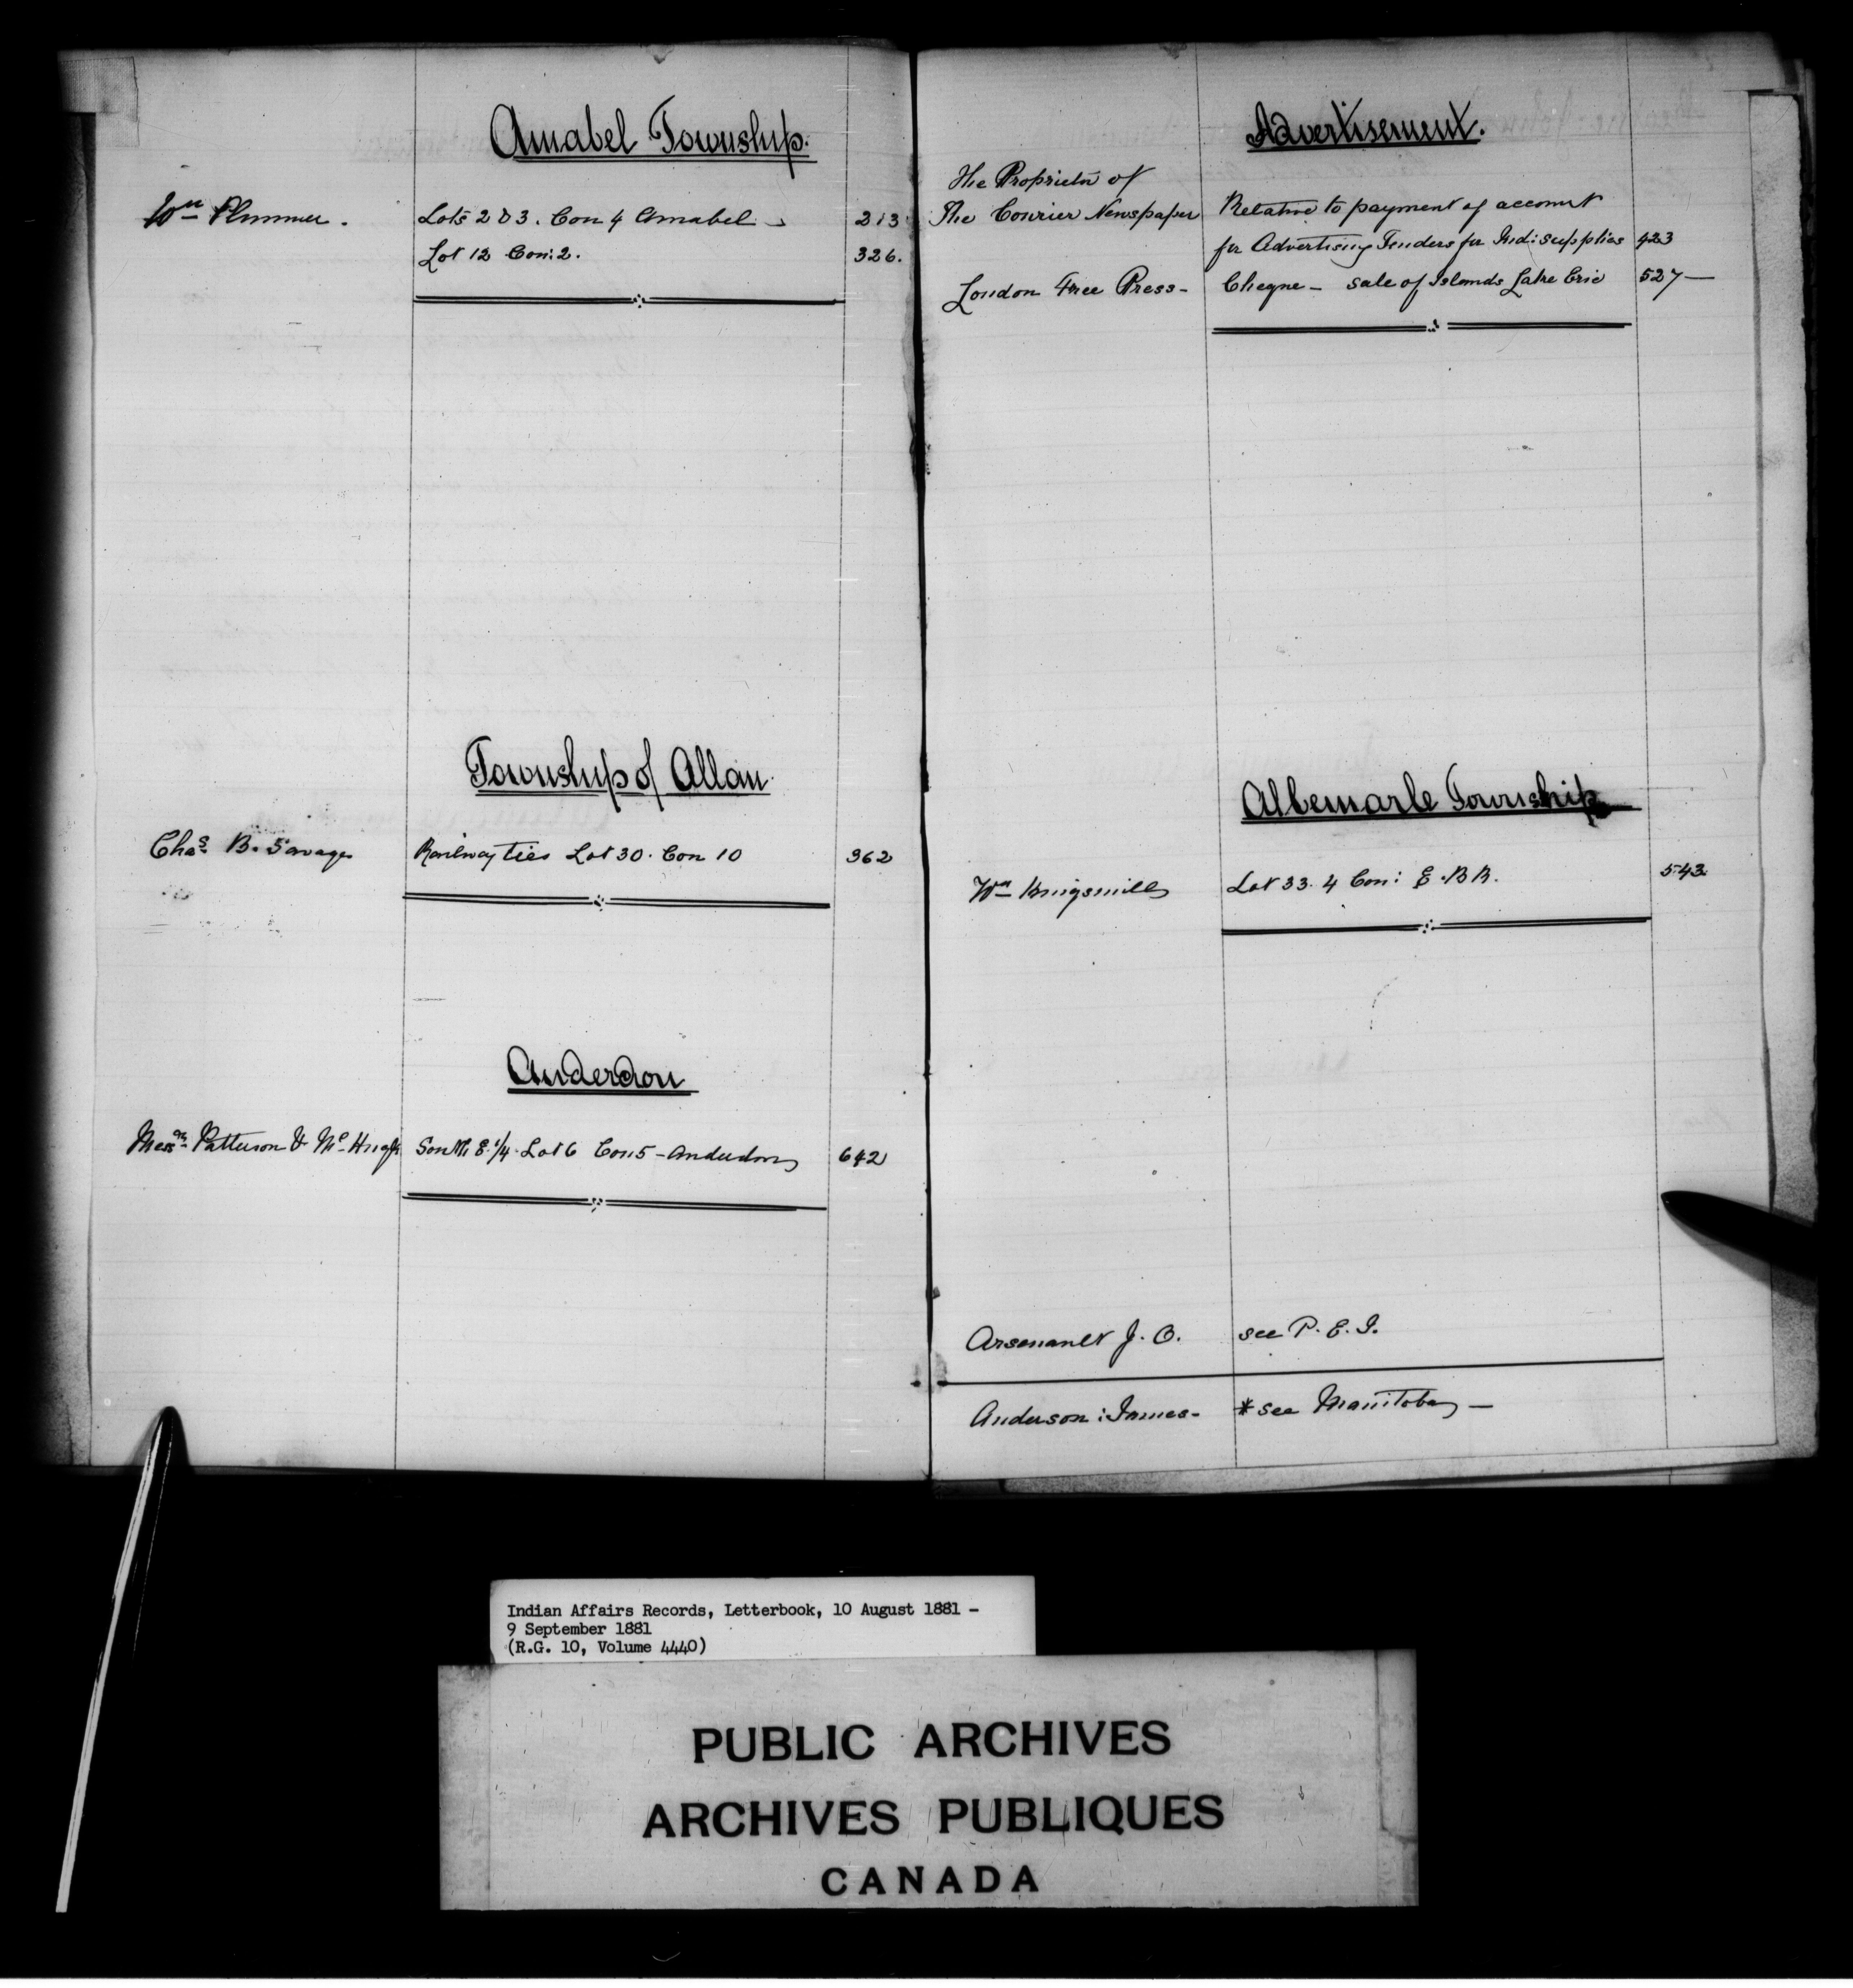 Amabel Township.
Wm Plummer. Lots 2 & 3. Con 4 Amabel 213
Lot 12 Con: 2. 326.
Township of Allan
Chas B. Savage Railway ties Lot 30. Con 10 362
Anderdon
Messrs Patterson & McHugh South E 1/4 Lot 6 Con 5 - Anderdon 642
Advertisement.
The Proprietor of
The Courier Newspaper Relative to payment of account
for Advertising Tenders for Ind: supplies 423
London Free Press - Cheque - sale of Islands Lake Erie 527 —
Albemarle Township
Wm Kingsmill Lot 33. 4 Con: E. B R. 543
Arsenault J. O. see P. E. I.
Anderson: James - * see Manitoba —
Indian Affairs Records, Letterbook, 10 August 1881 -
9 September 1881
(R.G. 10, Volume 4440)
PUBLIC ARCHIVES
ARCHIVES PUBLIQUES
CANADA